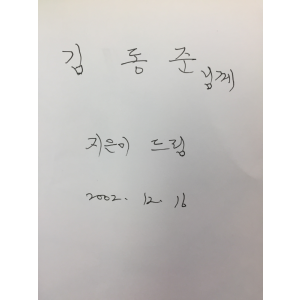 김 동 준 님께
지은이 드림
2002. 12. 16